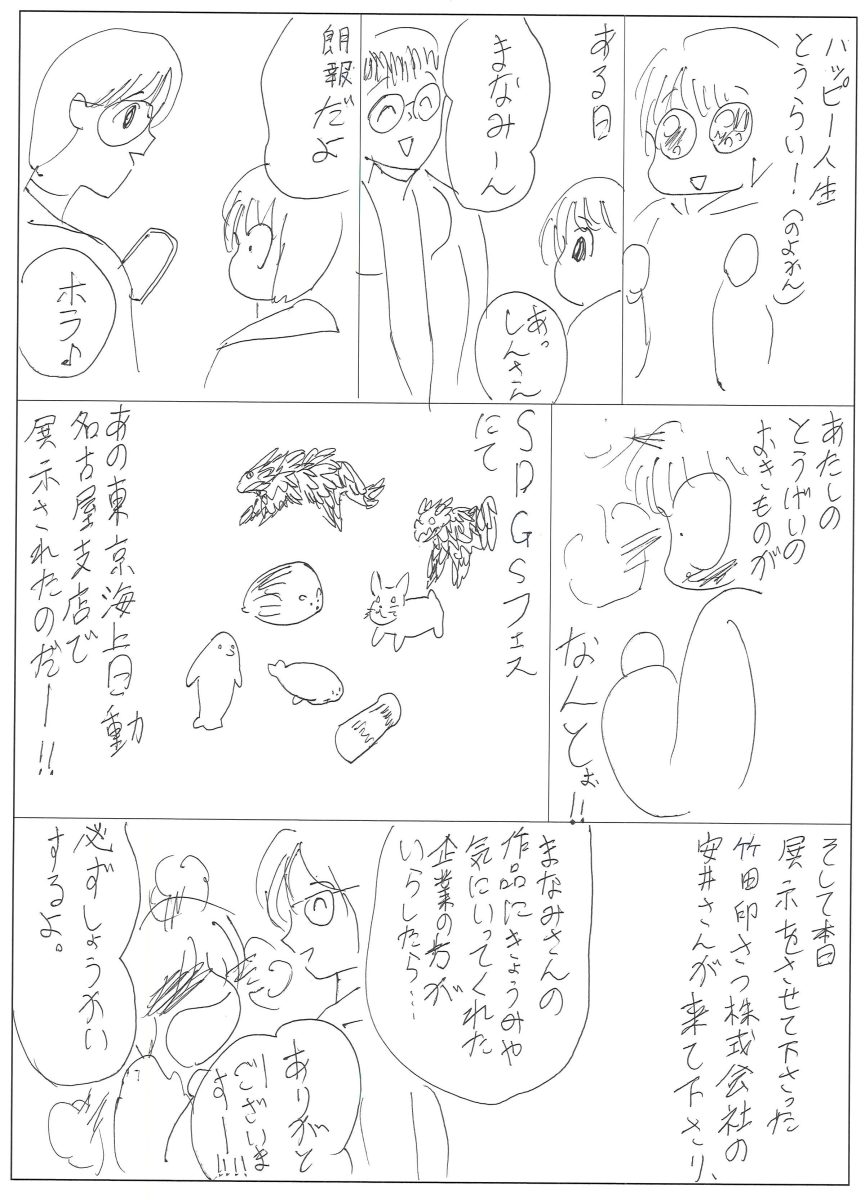 ハッピー人生
とうらい！（のよかん）
ある日
まなみーん
あっ
しんさん
朗報だよ
ホラ♪
あたしの
とうげいの
おきものが
なんとぉ!!
SDGSフェス
にて
あの東京海上日動
名古屋支店で
展示されたのだー!!
そして本日
展示をさせて下さった
竹田印さつ株式会社の
安井さんが来て下さり、
まなみさんの
作品にきょうみや
気にいってくれた
企業の方が
いらしたら…
必ずしょうかい
するよ。
ありがと
ーございま
すー!!!!